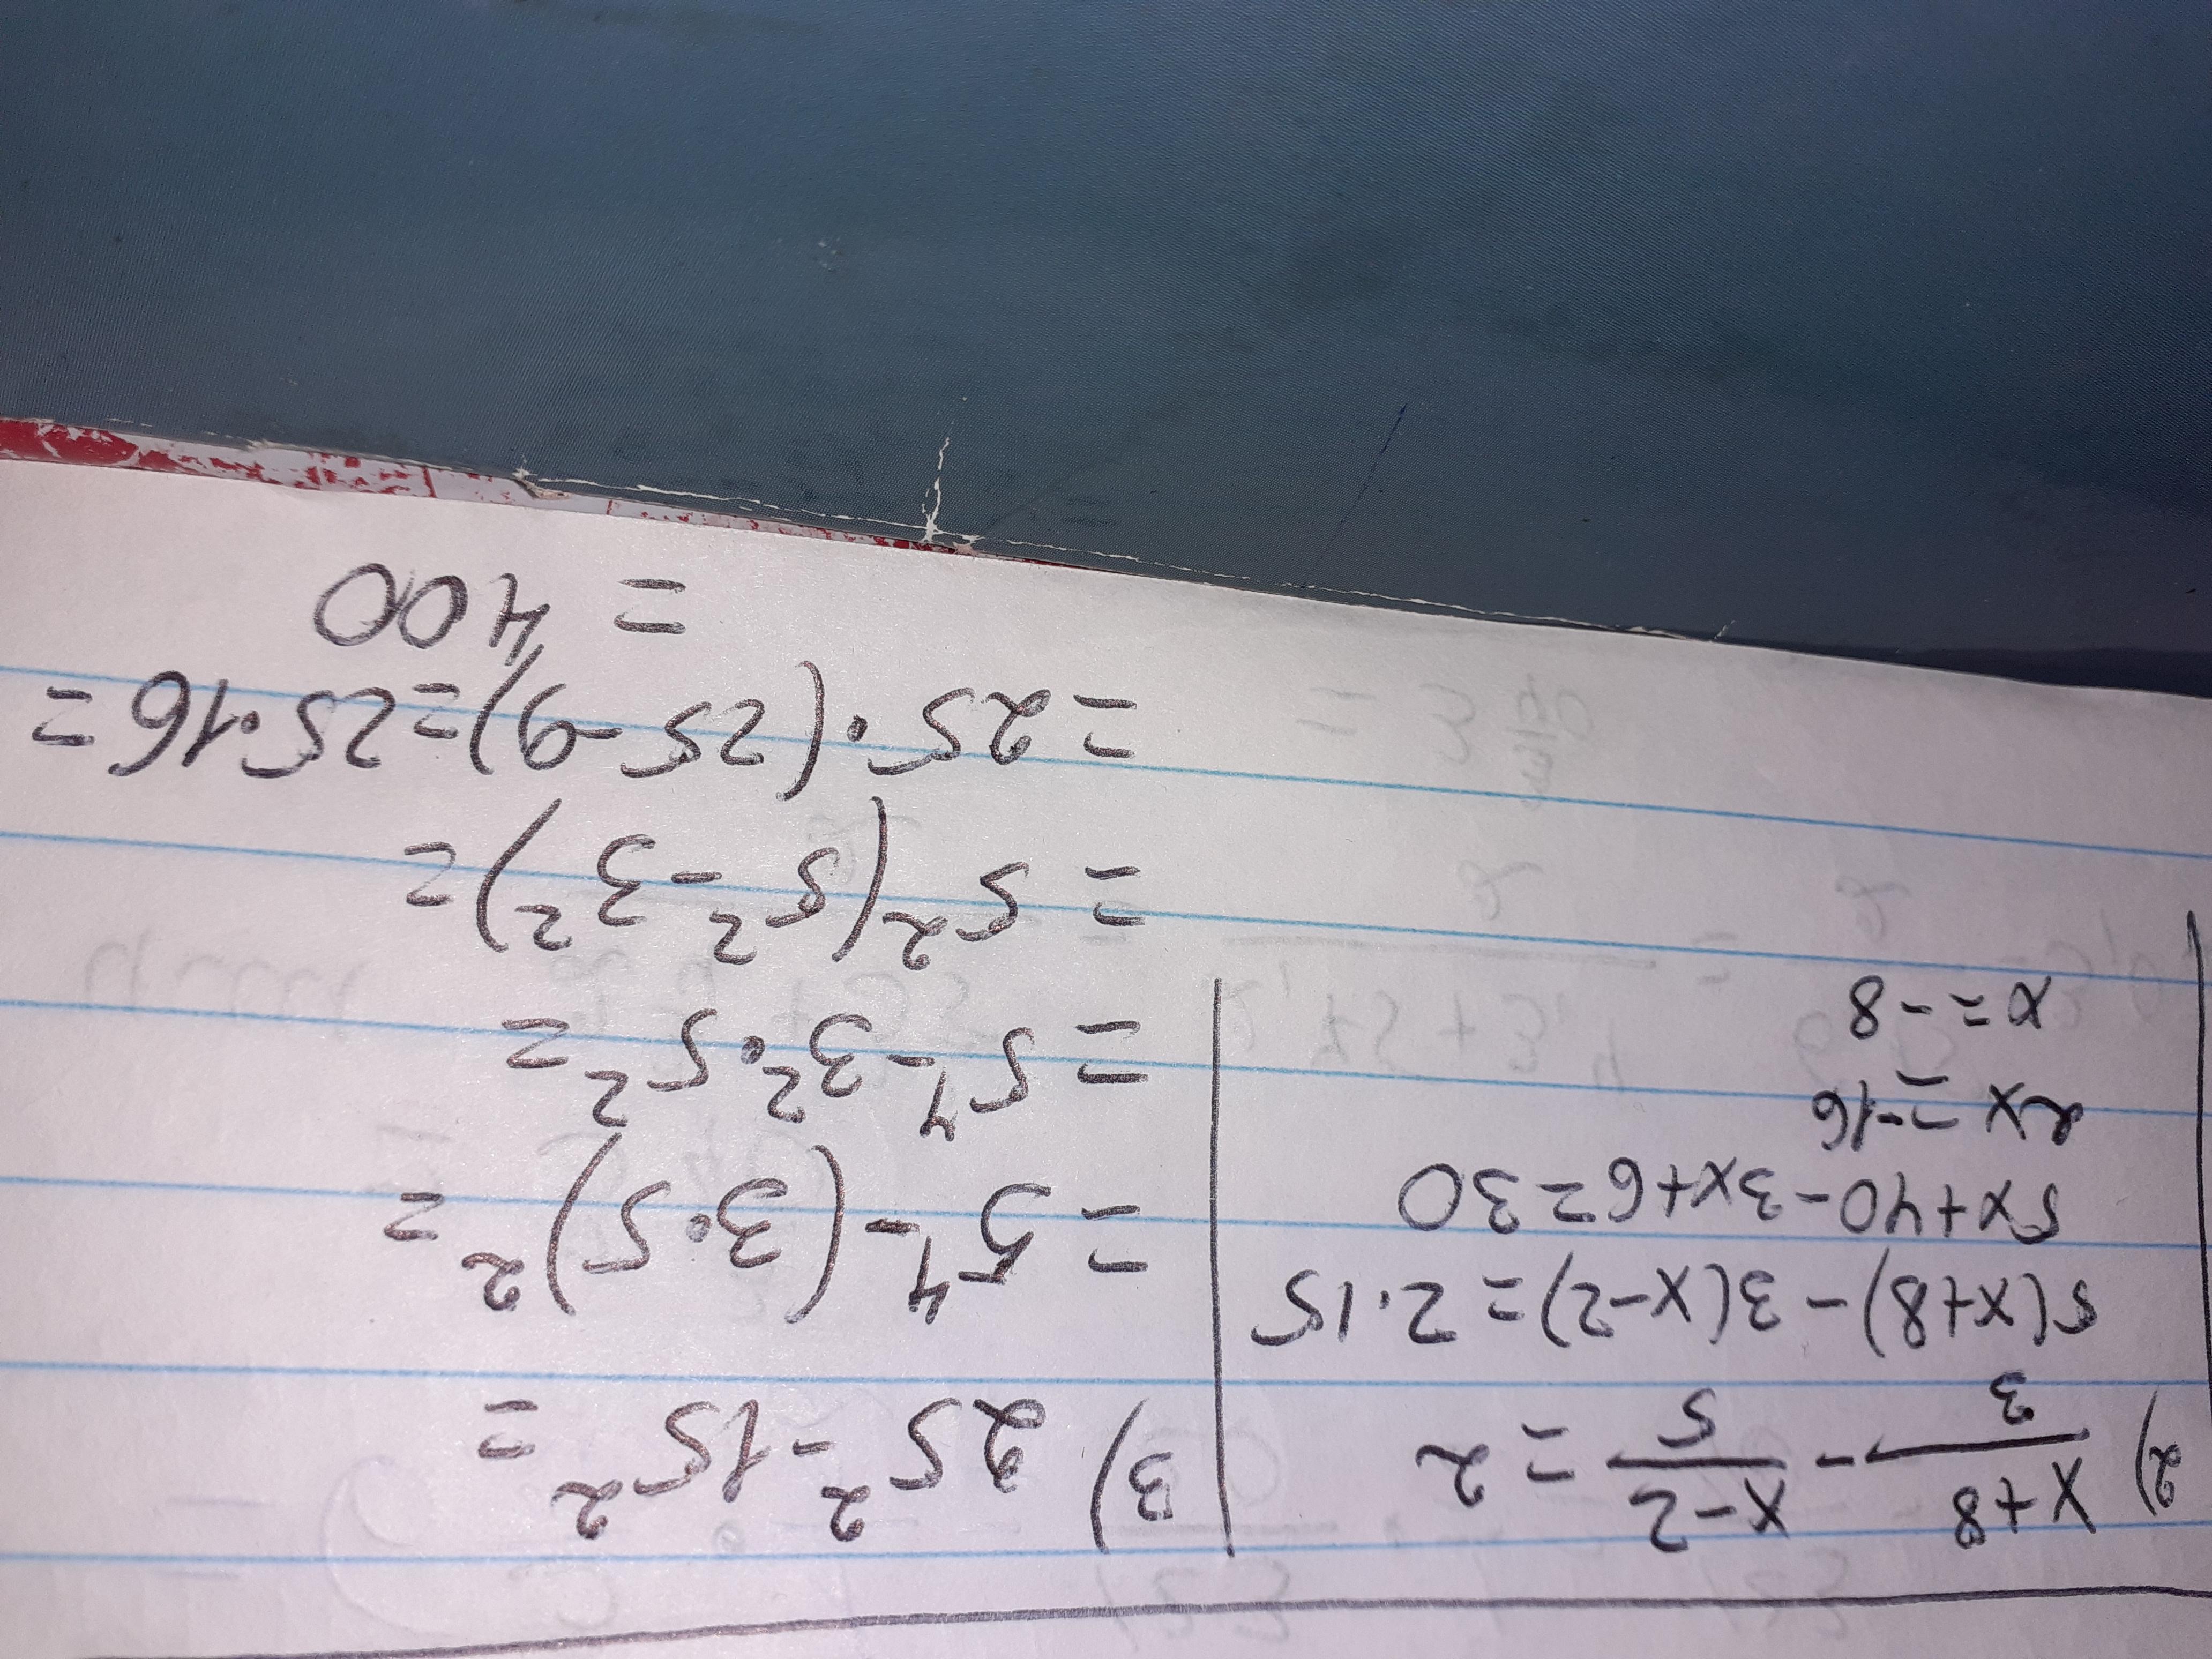 2) x+8/3 - x-2/5 = 2
5(x+8) - 3(x-2) = 2·15
5x+40-3x+6=30
2x=-16
x=-8
3) 25² - 15² =
= 5⁴ - (3·5)² =
= 5⁴ - 3²·5² =
= 5²(5² - 3²) =
= 25·(25-9) = 25·16 =
= 400